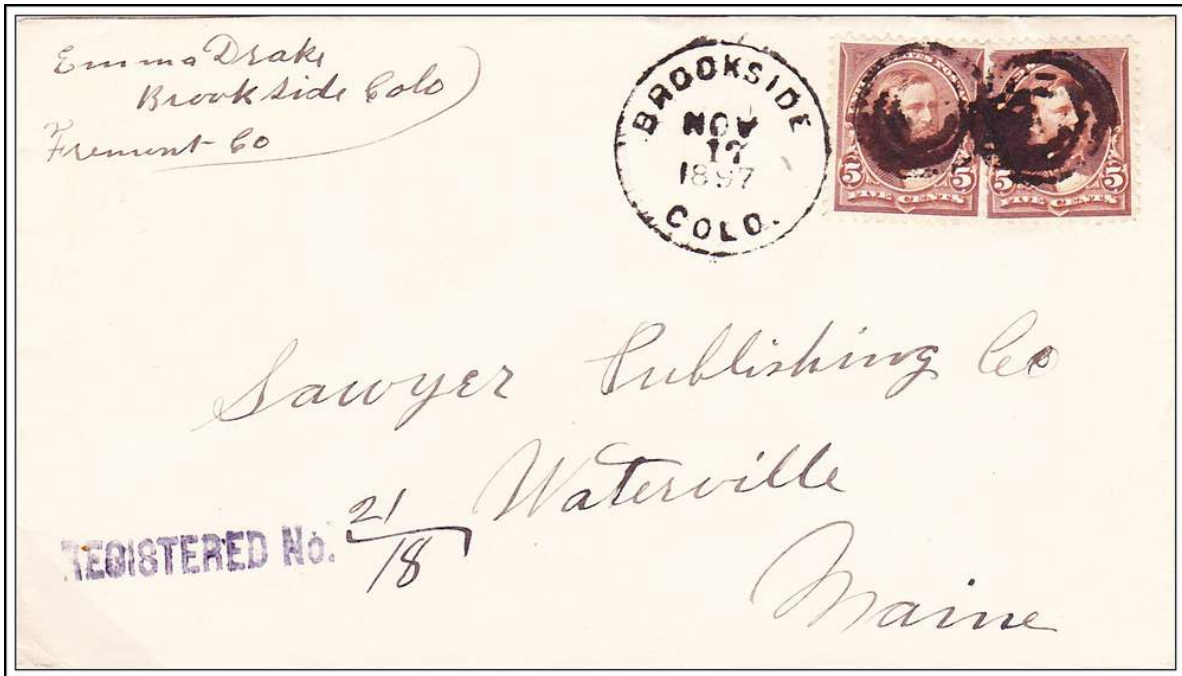 Emma Drake
Brookside Colo
Fremont Co
BROOKSIDE
NOV
17
1897
COLO.
5 5
FIVE CENTS
5 5
FIVE CENTS
Sawyer Publishing Co
Waterville
Maine
REGISTERED No. 21
18